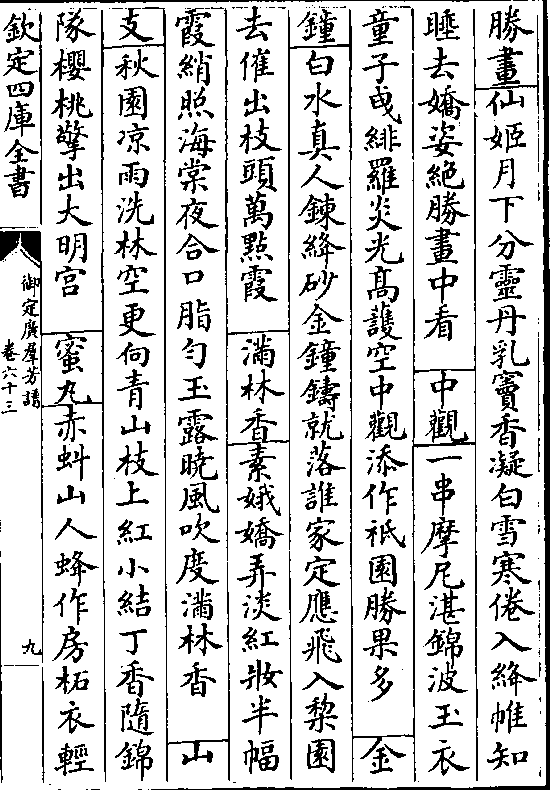 勝畫仙姬月下分靈丹乳竇香凝白雪寒倦入絳帷知
睡去嬌姿絶勝畫中看　中觀一串摩尼湛錦波玉衣
童子曳緋羅炎光高護空中觀添作祇園勝果多　金
鐘白水真人鍊絳砂金鐘鑄就落誰家定應飛入棃園
去催出枝頭萬點霞　滿林香素娥嬌弄淡紅妝半幅
霞綃照海棠夜合口脂勻玉露曉風吹度滿林香　山
支秋園凉雨洗林空更向青山枝上紅小結丁香隨錦
隊櫻桃擎出大明宫　蜜丸赤蚪山人蜂作房柘衣輕
欽定四庫全書
御定廣羣芳譜
卷六十三
九